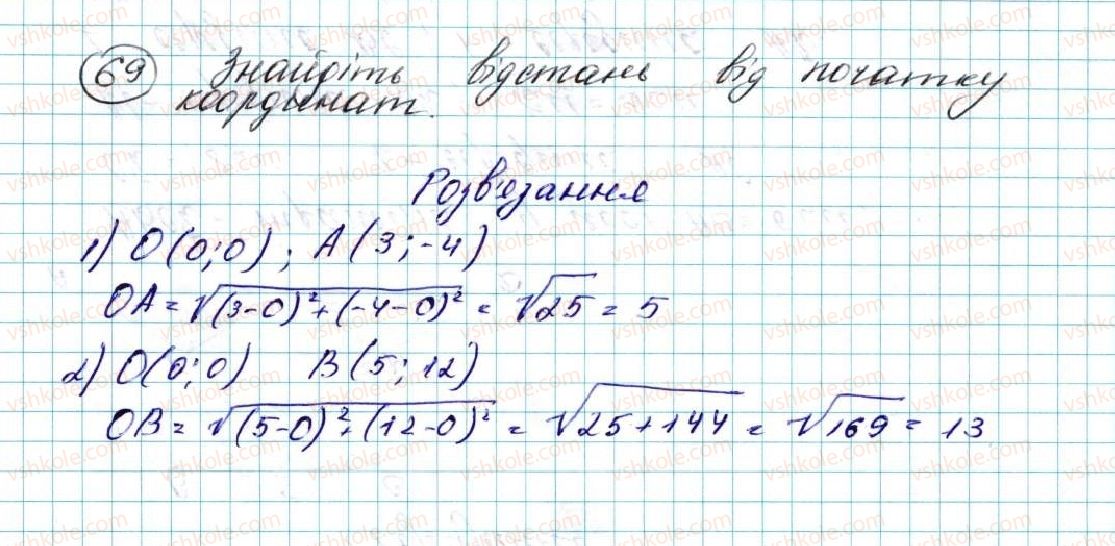 69 Знайдіть відстань від початку
координат.
Розв'язання
1) O(0;0); A(3;-4)
OA = √(3-0)²+(-4-0)² = √25 = 5
2) O(0;0) B(5;12)
OB = √(5-0)²+(12-0)² = √25+144 = √169 = 13